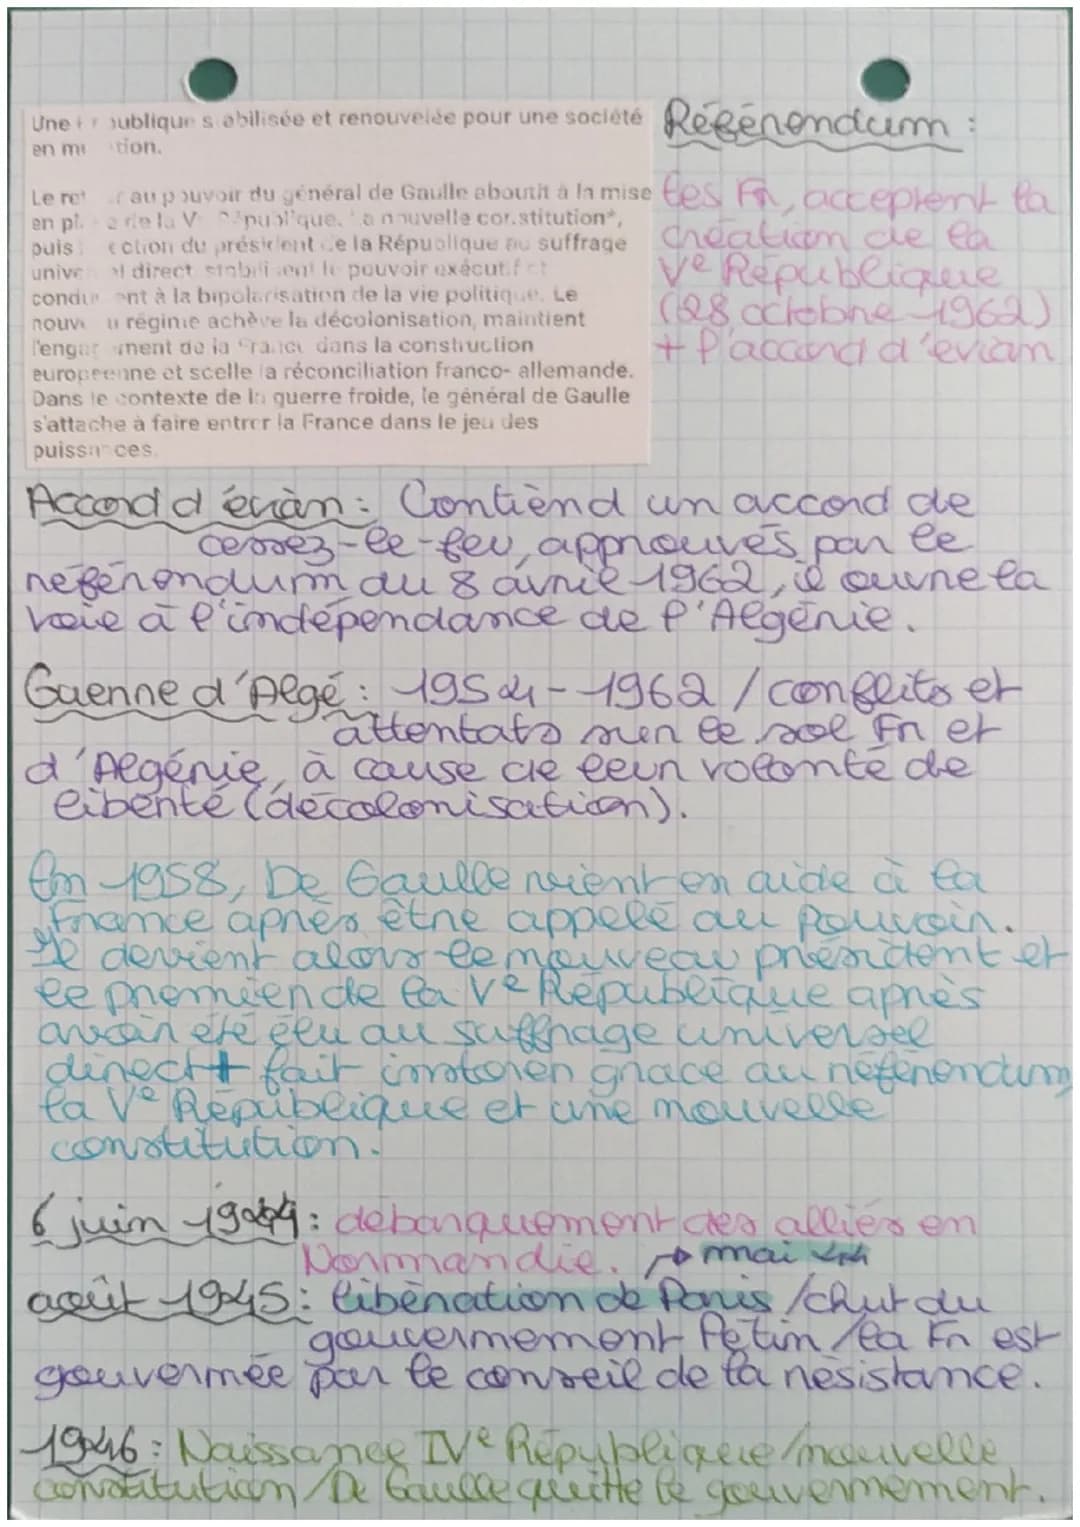 Une République stabilisée et renouvelée pour une société
en mutation.
Le retour au pouvoir du général de Gaulle aboutit à la mise
en place de la Ve République. La nouvelle constitution*,
puis l'élection du président de la République au suffrage
universel direct stabilisent le pouvoir exécutif et
conduisent à la bipolarisation de la vie politique. Le
nouveau régime achève la décolonisation, maintient
l'engagement de la France dans la construction
européenne et scelle la réconciliation franco- allemande.
Dans le contexte de la guerre froide, le général de Gaulle
s'attache à faire entrer la France dans le jeu des
puissances.
Référendum :
les Fr, acceptent la
création de la
Ve République
(28 octobre 1962)
+ l'accord d'evian
Accord d'évian : Contiend un accord de
cessez-le-feu, approuvés par le
référendum du 8 avril 1962, il ouvre la
voie à l'indépendance de l'Algérie.
Guerre d'Algé : 1954-1962 / conflits et
attentats sur le sol Fr et
d'Algérie, à cause de leur volonté de
liberté (décolonisation).
En 1958, De Gaulle vient en aide à la
France après être appelé au pouvoir.
Il devient alors le nouveau président et
le premier de la Ve République après
avoir été élu au suffrage universel
direct + fait instorer grace au référendum
la Ve République et une nouvelle
constitution.
6 juin 1944 : débarquement des alliés en
Normandie. → mai 44
août 1945 : libération de Paris / chut du
gouvernement Pétin / la Fr est
gouvernée par le conseil de la résistance.
1946 : Naissance IVe République / nouvelle
constitution / De Gaulle quitte le gouvernement.